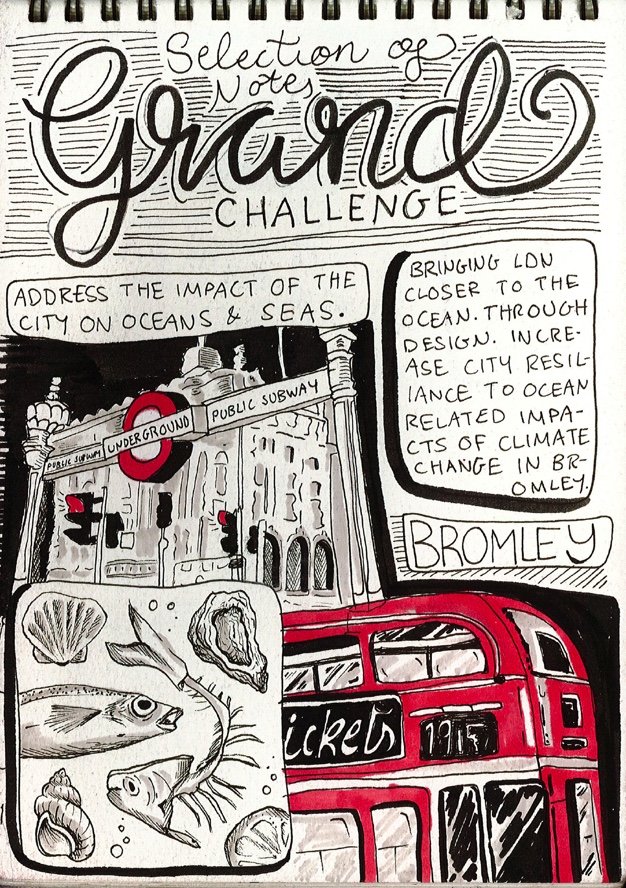 Selection of
Notes
Grand
CHALLENGE
ADDRESS THE IMPACT OF THE
CITY ON OCEANS & SEAS.
BRINGING LDN
CLOSER TO THE
OCEAN. THROUGH
DESIGN. INCRE-
ASE CITY RESIL-
IANCE TO OCEAN
RELATED IMPA-
CTS OF CLIMATE
CHANGE IN BR-
OMLEY.
PUBLIC SUBWAY
UNDERGROUND
PUBLIC SUBWAY
BROMLEY
ickets